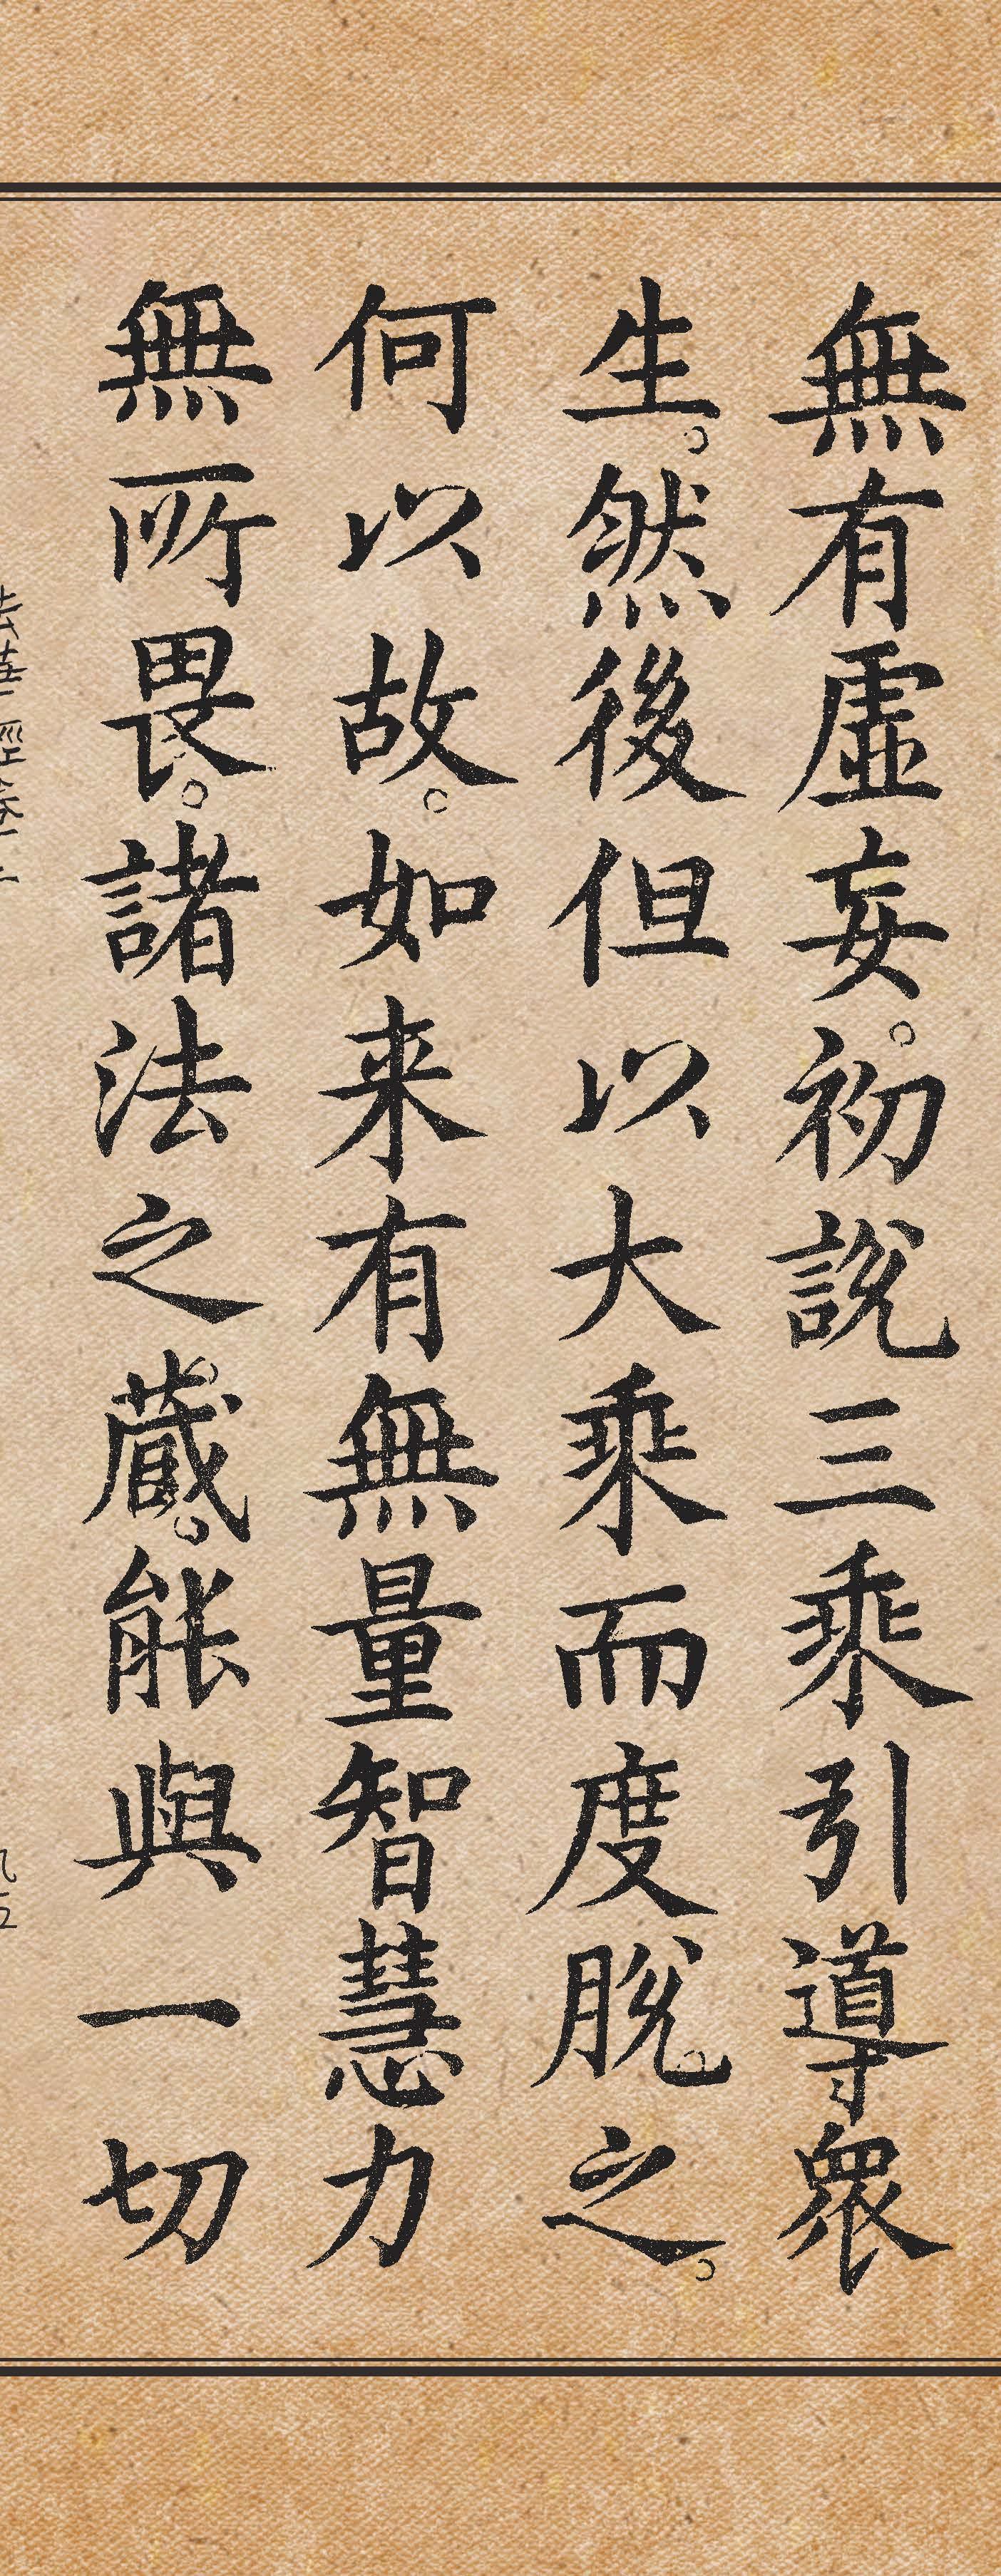 無有虛妄。初說三乘引導眾
生。然後但以大乘而度脫之。
何以故。如来有無量智慧力
無所畏。諸法之藏。能與一切